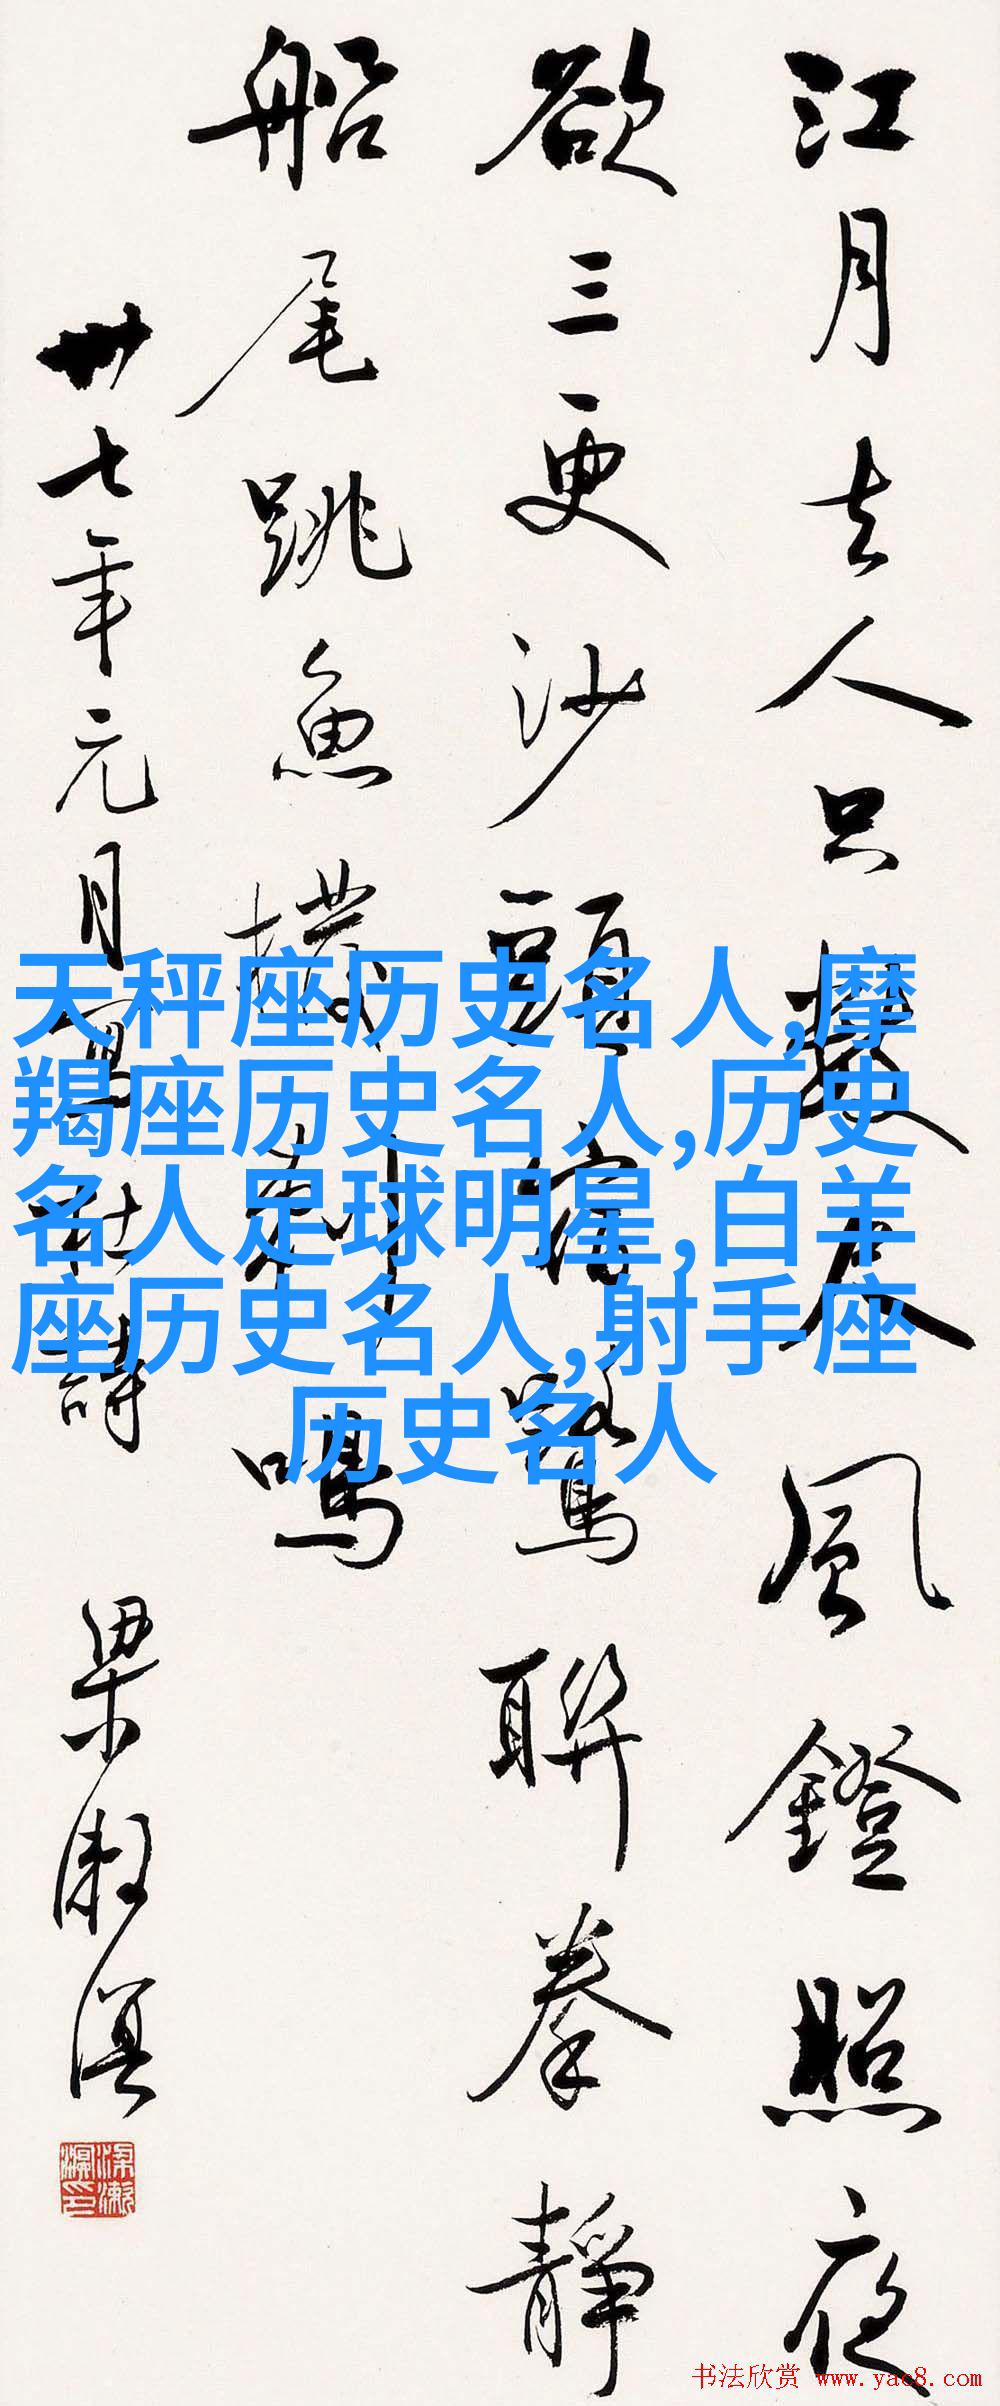 江月去人只數尺風鐙照夜
欲三更沙頭宿鷺聯拳靜
船尾跳魚撥剌鳴
卅七年元月寫杜詩 梁漱溟
梁漱溟印
天秤座历史名人,摩
羯座历史名人,历史
名人足球明星,白羊
座历史名人,射手座
历史名人
书法欣赏 www.yac8.com